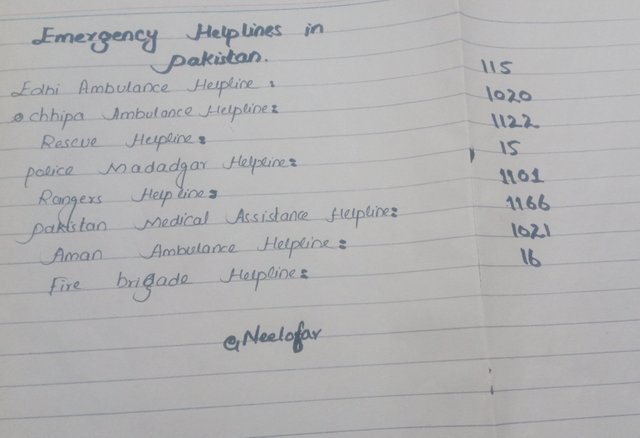 Emergency Helplines in
Pakistan.
Edhi Ambulance Helpline: 115
chhipa Ambulance Helpline: 1020
Rescue Helpline: 1122
police Madadgar Helpline: 15
Rangers Helpline: 1101
pakistan Medical Assistance Helpline: 1166
Aman Ambulance Helpline: 1021
Fire brigade Helpline: 16
@Neelofar